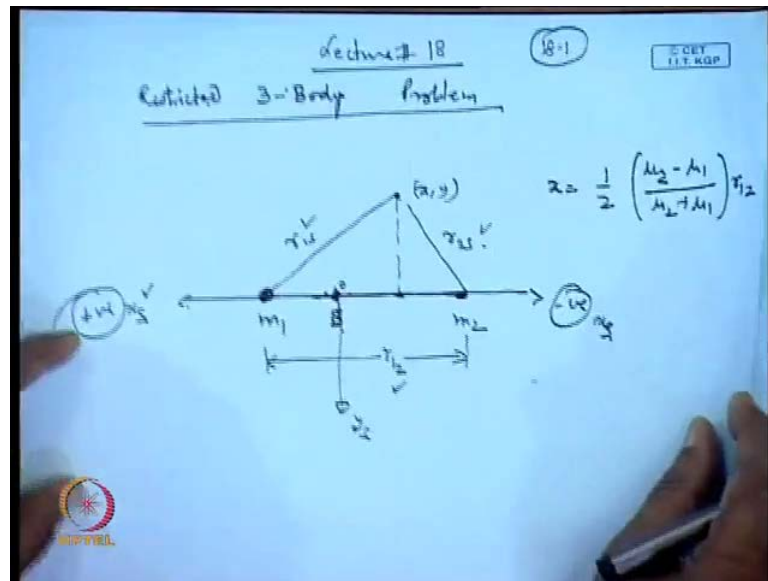 Lecture # 18
18-1
© CET
I.I.T. KGP
Restricted 3-Body Problem
(x, y)
x = 1/2 ((μ2 - μ1)/(μ2 + μ1)) r12
r1s ✓
r2s ✓
+ve xs ✓
m1
B
m2
-ve xs
r12 ✓
ys
NPTEL